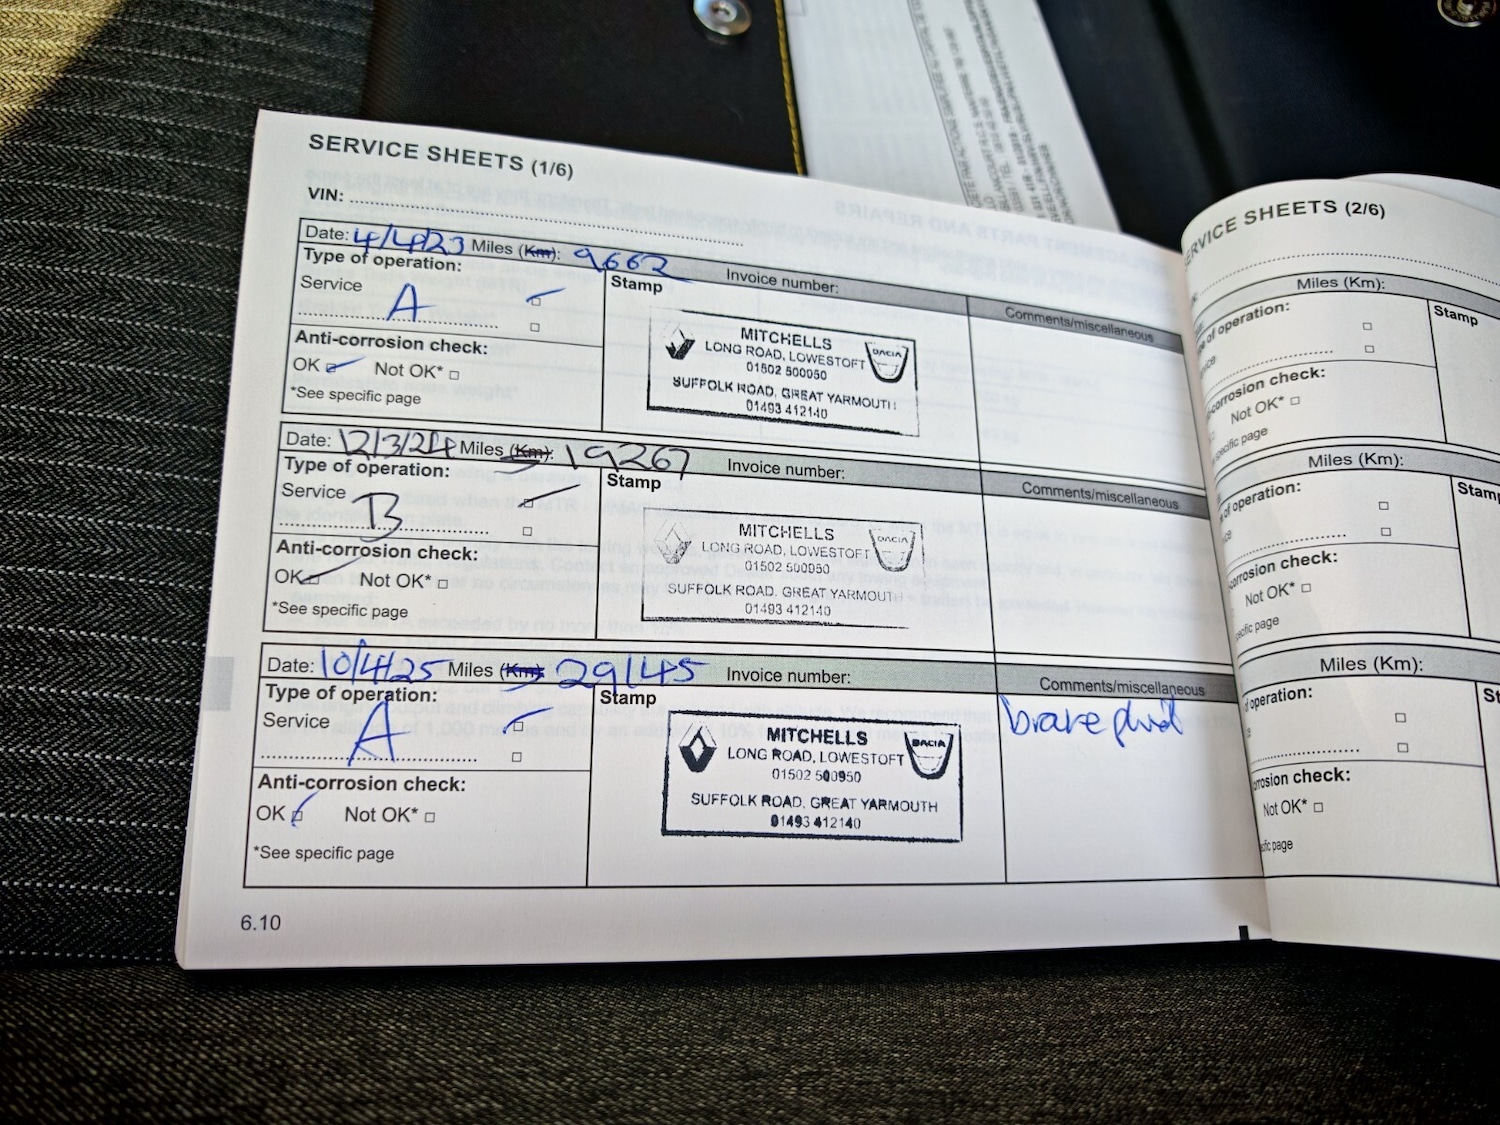 SERVICE SHEETS (1/6)
VIN:
Date: 4/4/23 Miles (Km): 9662
Type of operation:
Service A
Anti-corrosion check:
OK Not OK*
*See specific page
Stamp
Invoice number:
Comments/miscellaneous
MITCHELLS
LONG ROAD, LOWESTOFT
DACIA
01502 500950
SUFFOLK ROAD, GREAT YARMOUTH
01493 412140
Date: 12/3/24 Miles (Km): 19267
Type of operation:
Service B
Anti-corrosion check:
OK Not OK*
*See specific page
Stamp
Invoice number:
Comments/miscellaneous
MITCHELLS
LONG ROAD, LOWESTOFT
DACIA
01502 500950
SUFFOLK ROAD, GREAT YARMOUTH
01493 412140
Date: 10/4/25 Miles (Km): 29145
Type of operation:
Service A
Anti-corrosion check:
OK Not OK*
*See specific page
Stamp
Invoice number:
Comments/miscellaneous
brake fluid
MITCHELLS
LONG ROAD, LOWESTOFT
DACIA
01502 500950
SUFFOLK ROAD, GREAT YARMOUTH
01493 412140
6.10
ERVICE SHEETS (2/6)
Miles (Km):
of operation:
Stamp
corrosion check:
Not OK*
specific page
Miles (Km):
of operation:
Stamp
corrosion check:
Not OK*
specific page
Miles (Km):
operation:
St
rrosion check:
Not OK*
cific page